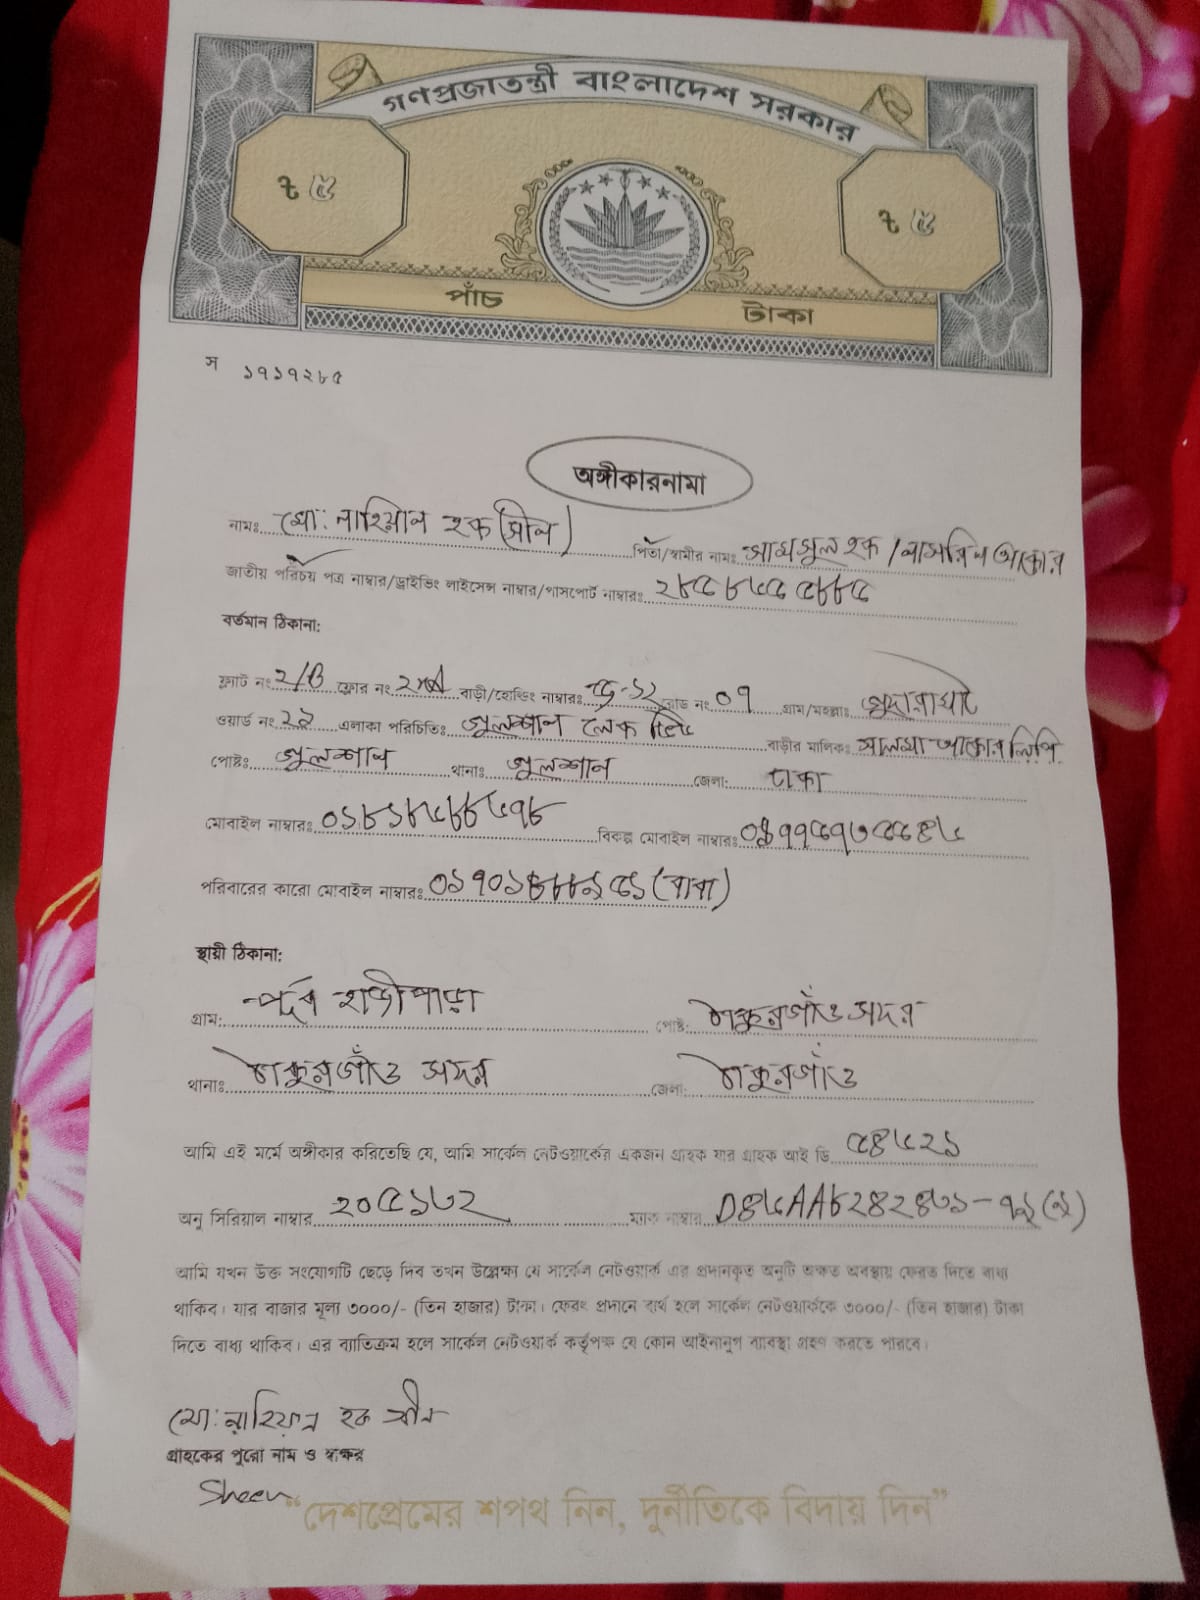 গণপ্রজাতন্ত্রী বাংলাদেশ সরকার
৳ ৫
৳ ৫
পাঁচ টাকা
স ১৭১৭২৮৫
অঙ্গীকারনামা
নামঃ মো: নাহিয়ান হক (সীন) পিতা/স্বামীর নামঃ সামসুল হক / নাসরিন আক্তার
জাতীয় পরিচয় পত্র নাম্বার/ড্রাইভিং লাইসেন্স নাম্বার/পাসপোর্ট নাম্বারঃ
বর্তমান ঠিকানা:
ফ্ল্যাট নং ২/B ফ্লোর নং বাড়ী/হোল্ডিং নাম্বারঃ রোড নং ০৭ গ্রাম/মহল্লাঃ গুদারাঘাট
ওয়ার্ড নং এলাকা পরিচিতিঃ গুলশান লেক বাড়ীর মালিকঃ সালমা আক্তার লিপি
পোষ্টঃ গুলশান থানাঃ গুলশান জেলা: ঢাকা
মোবাইল নাম্বারঃ বিকল্প মোবাইল নাম্বারঃ
পরিবারের কারো মোবাইল নাম্বারঃ (বাবা)
স্থায়ী ঠিকানা:
গ্রাম: পূর্ব হাজীপাড়া পোষ্ট: ঠাকুরগাঁও সদর
থানাঃ ঠাকুরগাঁও সদর জেলা: ঠাকুরগাঁও
আমি এই মর্মে অঙ্গীকার করিতেছি যে, আমি সার্কেল নেটওয়ার্কের একজন গ্রাহক যার গ্রাহক আই ডি ৫৪৬২১
অনু সিরিয়াল নাম্বার ২০৫১৬২ ম্যাক নাম্বার
আমি যখন উক্ত সংযোগটি ছেড়ে দিব তখন উল্লেক্ষ্য যে সার্কেল নেটওয়ার্ক এর প্রদানকৃত অনুটি অক্ষত অবস্থায় ফেরত দিতে বাধ্য
থাকিব। যার বাজার মূল্য ৩০০০/- (তিন হাজার) টাকা। ফেরৎ প্রদানে ব্যর্থ হলে সার্কেল নেটওয়ার্ককে ৩০০০/- (তিন হাজার) টাকা
দিতে বাধ্য থাকিব। এর ব্যাতিক্রম হলে সার্কেল নেটওয়ার্ক কর্তৃপক্ষ যে কোন আইনানুগ ব্যাবস্থা গ্রহণ করতে পারবে।
মো: নাহিয়ান হক সীন
গ্রাহকের পুরো নাম ও স্বাক্ষর
Sheen
“দেশপ্রেমের শপথ নিন, দুর্নীতিকে বিদায় দিন”